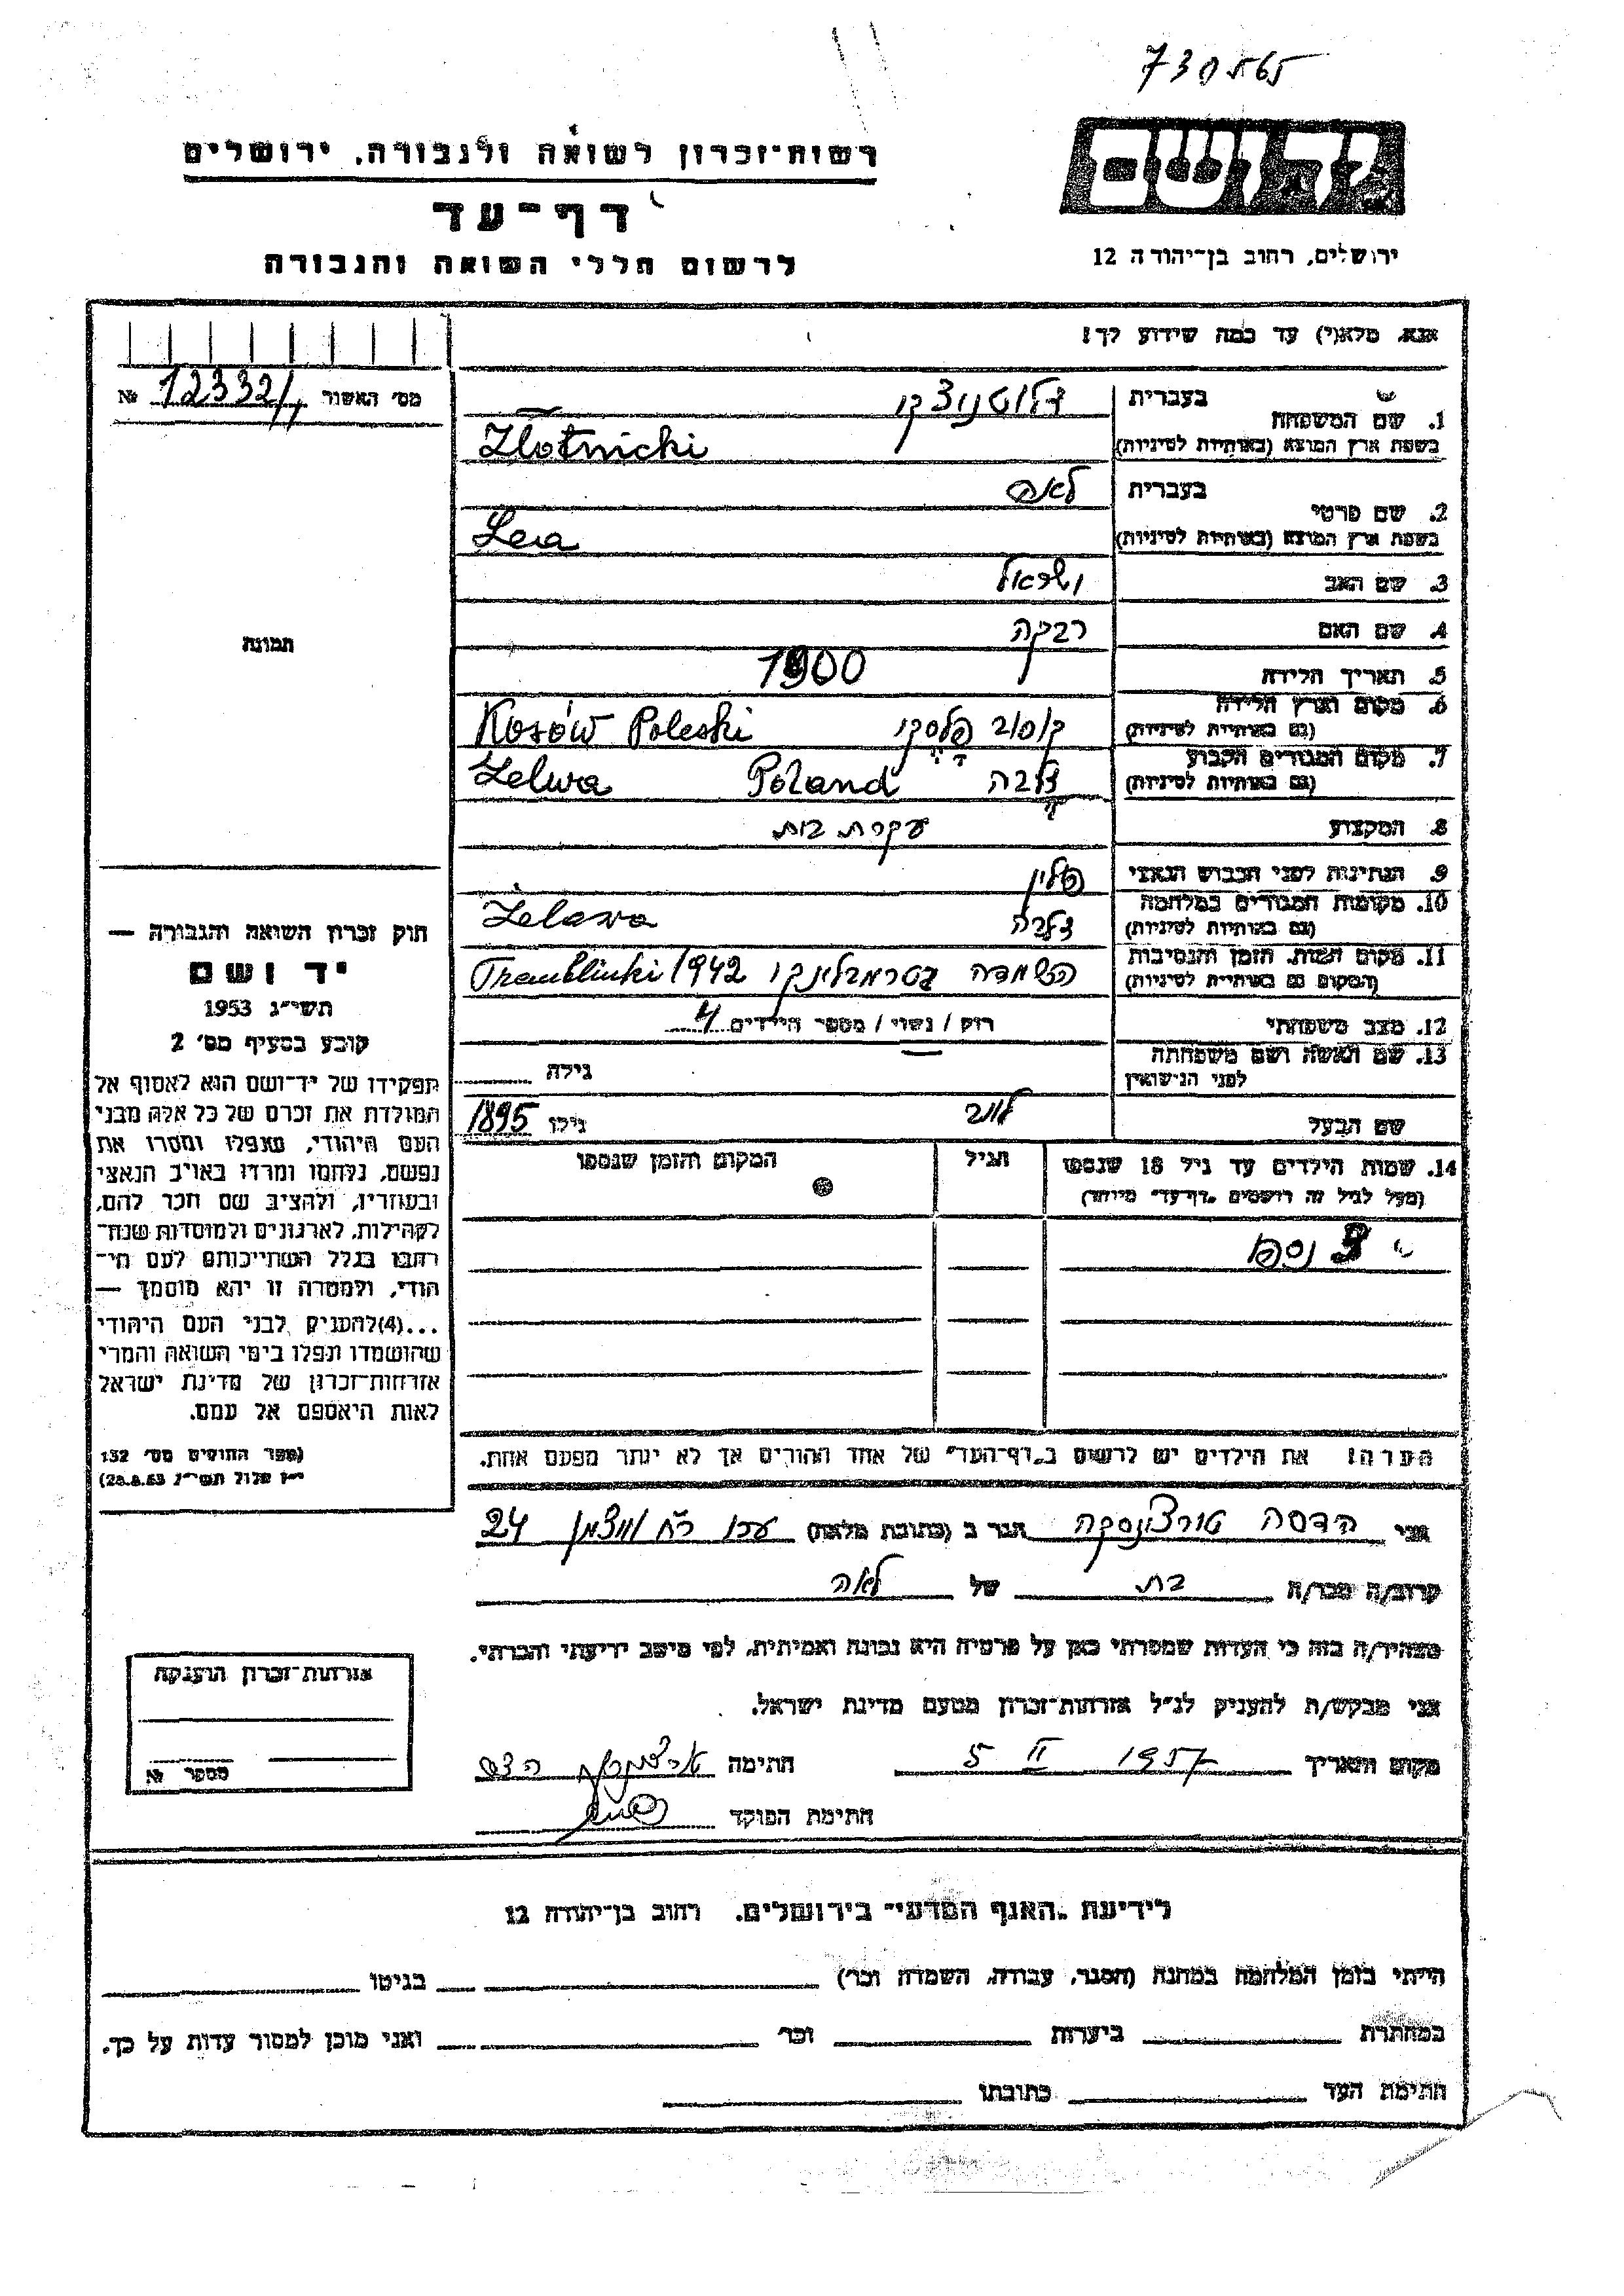 730565
יד ושם
ירושלים, רחוב בן־יהודה 12
רשות־זכרון לשואה ולגבורה, ירושלים
דף־עד
לרשום חללי השואה והגבורה
אנא, מלא(י) עד כמה שידוע לך!
מס׳ האשור 12332/1 №
1. שם המשפחה
בעברית זלוטניצקי
בשפת ארץ המוצא (באותיות לטיניות) Złotnicki
2. שם פרטי
בעברית לאה
בשפת ארץ המוצא (באותיות לטיניות) Lea
3. שם האב ישראל
4. שם האם רבקה
5. תאריך הלידה 1900
6. מקום וארץ הלידה
(גם באותיות לטיניות) קוסוב פולסקי Kosów Poleski
7. מקום המגורים הקבוע
(גם באותיות לטיניות) זלבה Poland Zelwa
8. המקצוע עקרת בית
9. הנתינות לפני הכבוש הנאצי פולין
10. מקומות המגורים במלחמה
(גם באותיות לטיניות) זלבה Zelawa
11. מקום המות, הזמן והנסיבות
(המקום גם באותיות לטיניות) הושמדה בטרמבלינקי 1942 Tramblinki
12. מצב משפחתי רוק / נשוי / מספר הילדים 4
13. שם האשה ושם משפחתה
לפני הנישואין גילה
שם הבעל לייב גילו 1895
14. שמות הילדים עד גיל 18 שנספו
(מעל לגיל זה רושמים „דף־עד״ מיוחד)
הגיל
המקום והזמן שנספו
3 נספו
הערה! את הילדים יש לרשום ב„דף־העד״ של אחד ההורים אך לא יותר מפעם אחת.
תמונה
חוק זכרון השואה והגבורה —
יד ושם
תשי״ג 1953
קובע בסעיף מס׳ 2
תפקידו של יד־ושם הוא לאסוף אל
המולדת את זכרם של כל אלה מבני
העם היהודי, שנפלו ומסרו את
נפשם, נלחמו ומרדו באויב הנאצי
ובעוזריו, ולהציב שם וזכר להם,
לקהילות, לארגונים ולמוסדות שנח־
רבו בגלל השתייכותם לעם הי־
הודי, ולמטרה זו יהא מוסמך —
...(4)להעניק לבני העם היהודי
שהושמדו ונפלו בימי השואה והמרי
אזרחות־זכרון של מדינת ישראל
לאות היאספם אל עמם.
(ספר החוקים מס׳ 132
י״ז אלול תשי״ג 28.8.53)
אני הדסה הגר ב (כתובת מלאה) עכו רח׳ ויצמן 24
קרוב/ה מכר/ה בת של לאה
מצהיר/ה בזה כי העדות שמסרתי כאן על פרטיה היא נכונה ואמיתית, לפי מיטב ידיעתי והכרתי.
אני מבקש/ת להעניק לנ״ל אזרחות־זכרון מטעם מדינת ישראל.
מקום ותאריך 5 II 1957 חתימה
חתימת הפוקד
אזרחות־זכרון הוענקה
מספר №
לידיעת „האגף המדעי״ בירושלים, רחוב בן־יהודה 12
הייתי בזמן המלחמה במחנה (הסגר, עבודה, השמדה וכר׳) בגיטו
במחתרת ביערות וכר׳ ואני מוכן למסור עדות על כך.
חתימת העד כתובתו